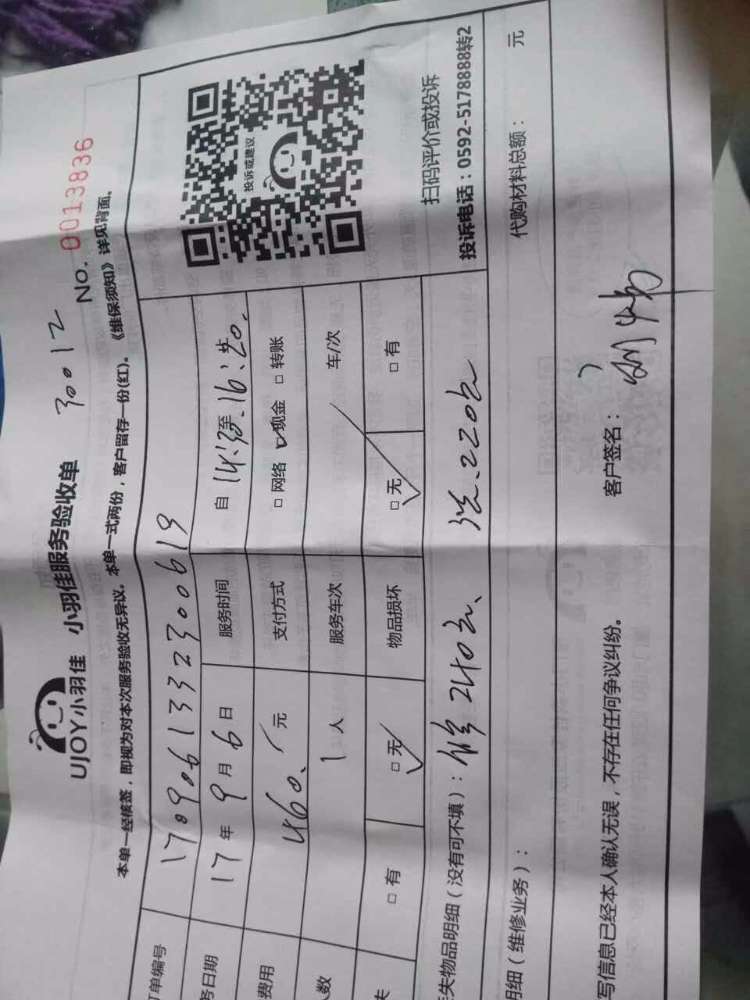 UJOY小羽佳 小羽佳服务验收单 30012 NO. 0013836
本单一经核签，即视为对本次服务验收无异议。本单一式两份，客户留存一份(红)。《维保须知》详见背面。
订单编号 1709061332300619
务日期 17年9月6日 服务时间 自14:30至16:20.
费用 460.元 支付方式 □网络 ☑现金 □转账
人数 1人 服务车次 车/次
失 □有 ☑无 物品损坏 ☑无 □有
投诉或建议
扫码评价或投诉
投诉电话：0592-5178888转2
失物品明细（没有可不填）：修240元、洗.220元
明细（维修业务）： 代购材料总额： 元
写信息已经本人确认无误，不存在任何争议纠纷。 客户签名：